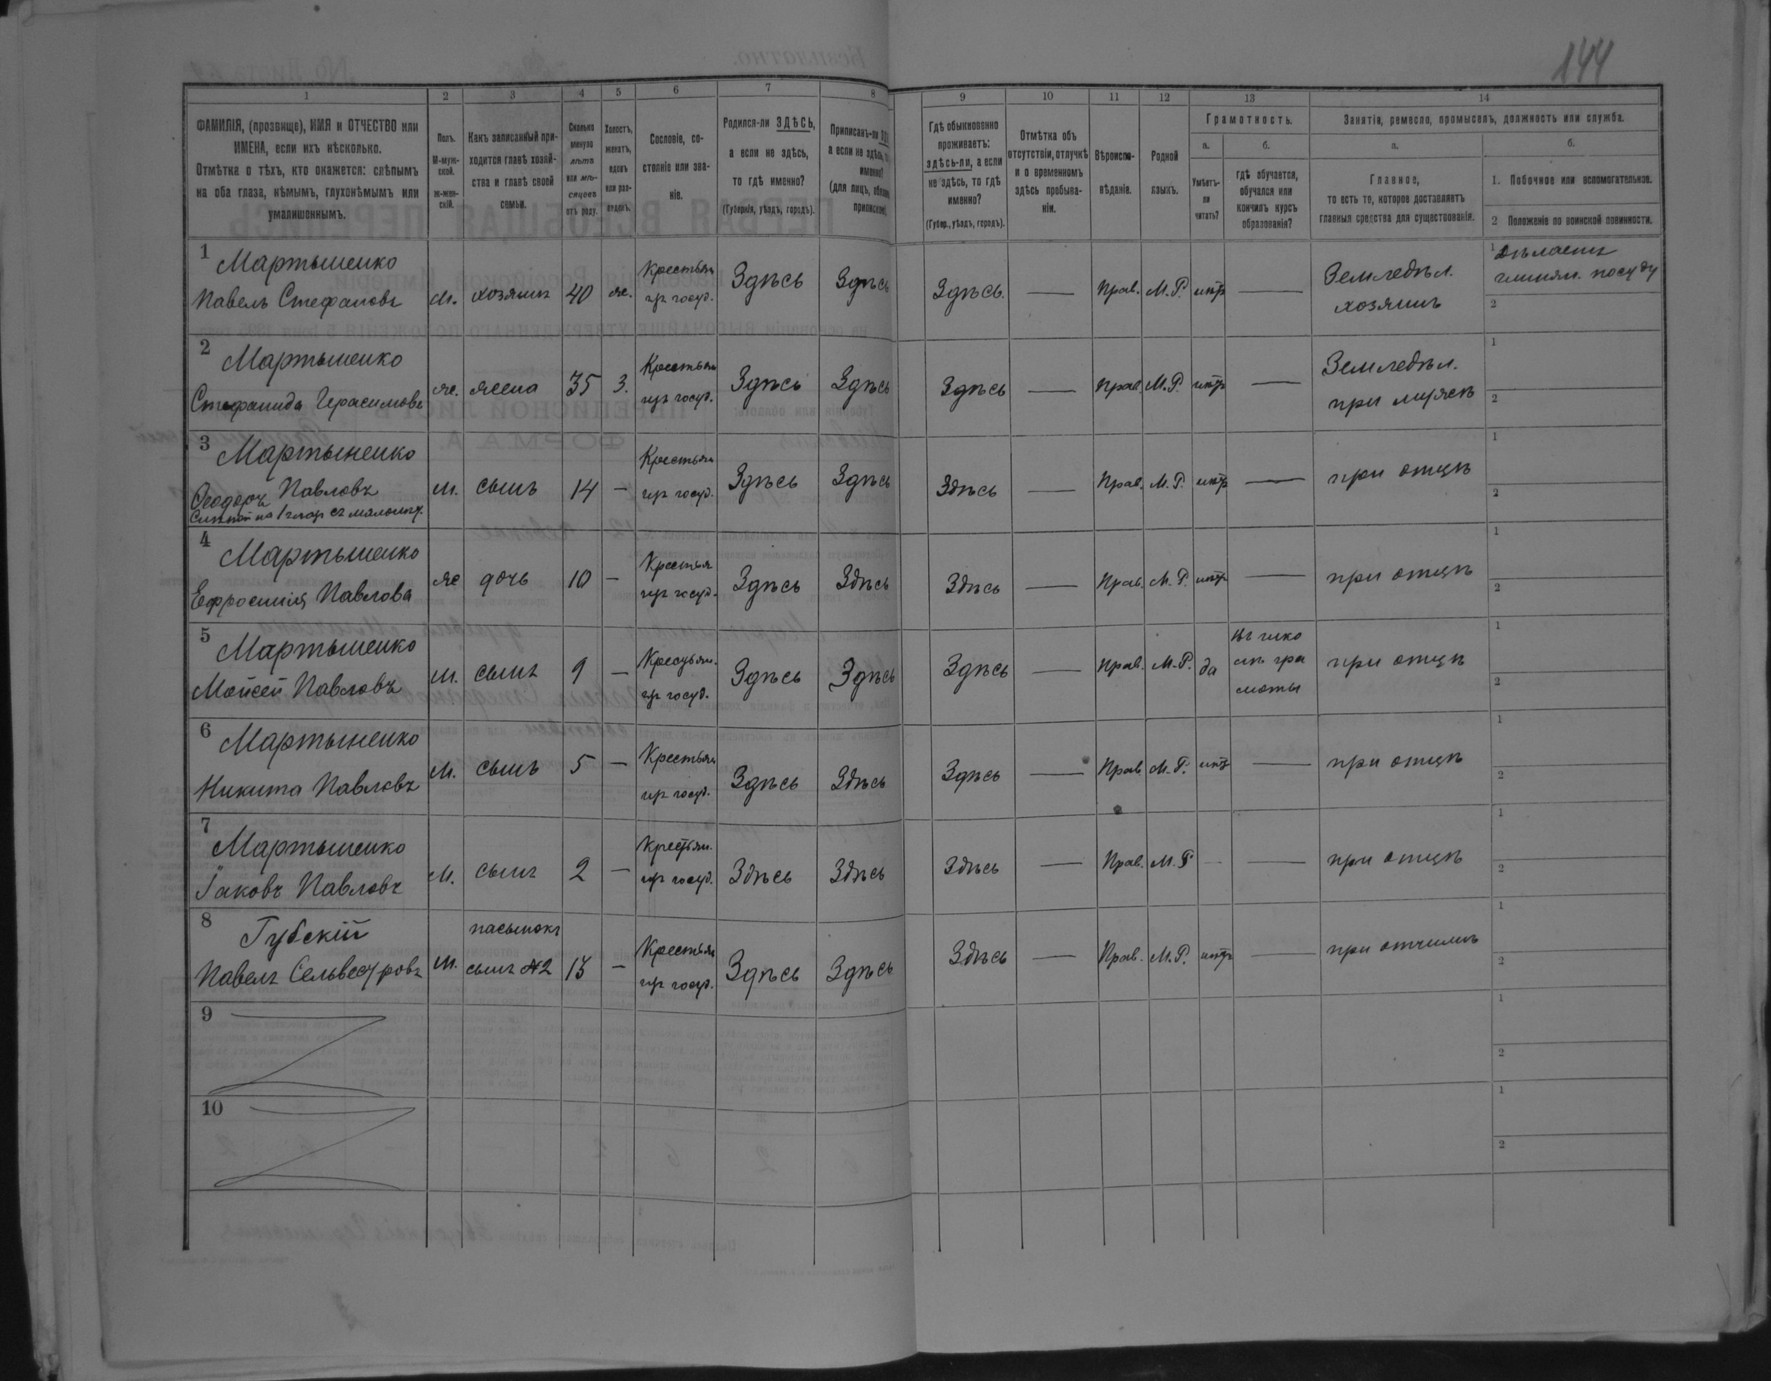 144
1 2 3 4 5 6 7 8 9 10 11 12 13 14
ФАМИЛІЯ, (прозвище), ИМЯ и ОТЧЕСТВО или
ИМЕНА, если ихъ нѣсколько.
Отмѣтка о тѣхъ, кто окажется: слѣпымъ
на оба глаза, нѣмымъ, глухонѣмымъ или
умалишеннымъ.
Полъ.
М-муж-
ской.
Ж-жен-
скій.
Какъ записанный при-
ходится главѣ хозяй-
ства и главѣ своей
семьи.
Сколько
минуло
лѣтъ
или мѣ-
сяцевъ
отъ роду.
Холостъ,
женатъ,
вдовъ
или раз-
веденъ.
Сословіе, со-
стояніе или зва-
ніе.
Родился-ли ЗДѢСЬ,
а если не здѣсь,
то гдѣ именно?
(Губернія, уѣздъ, городъ).
Приписанъ-ли
а если не здѣсь,
именно?
(для лицъ,
Гдѣ обыкновенно
проживаетъ:
здѣсь-ли, а если
не здѣсь, то гдѣ
именно?
(Губер., уѣздъ, городъ).
Отмѣтка объ
отсутствіи, отлучкѣ
и о временномъ
здѣсь пребыва-
ніи.
Вѣроиспо-
вѣданіе.
Родной
языкъ.
Грамотность.
а. б.
Умѣетъ-
ли
читать?
гдѣ обучается,
обучался или
кончилъ курсъ
образованія?
Занятіе, ремесло, промыселъ, должность или служба.
а. б.
Главное,
то есть то, которое доставляетъ
главныя средства для существованія.
1. Побочное или вспомогательное.
2 Положеніе по воинской повинности.
1 Мартыненко
Павелъ Стефановъ М. хозяинъ 40 же. Крестьян. гр. госуд. Здѣсь Здѣсь Здѣсь — Прав. М.Р. нѣтъ — Земледѣл.
хозяинъ
1 Дѣлаетъ
глинян. посуду
2
2 Мартыненко
Стефанида Герасимовъ же. жена 35 З. Крестьян гр госуд. Здѣсь Здѣсь Здѣсь — Прав. М.Р. нѣтъ — Земледѣл.
при мужѣ
1
2
3 Мартыненко
Феодоръ Павловъ М. сынъ 14 — Крестьян гр госуд. Здѣсь Здѣсь Здѣсь — Прав. М.Р. нѣтъ — при отцѣ
1
2
4 Мартыненко
Ефросинія Павлова же дочь 10 — Крестьян гр госуд. Здѣсь Здѣсь Здѣсь — Прав. М.Р. нѣтъ — при отцѣ
1
2
5 Мартыненко
Мойсей Павловъ М. сынъ 9 — Крестьян. гр госуд. Здѣсь Здѣсь Здѣсь — Прав. М.Р. да въ шко
лѣ гра
моты при отцѣ
1
2
6 Мартыненко
Никита Павловъ М. сынъ 5 — Крестьян гр госуд. Здѣсь Здѣсь Здѣсь — Прав. М.Р. нѣтъ — при отцѣ
1
2
7 Мартыненко
Іаковъ Павловъ М. сынъ 2 — Крестьян. гр госуд. Здѣсь Здѣсь Здѣсь — Прав. М.Р — — при отцѣ
1
2
8 Губскій
Павелъ Сельвестровъ М. пасынокъ
сынъ №2 13 — Крестьян гр госуд. Здѣсь Здѣсь Здѣсь — Прав. М.Р. нѣтъ — при отчимѣ
1
2
9
1
2
10
1
2